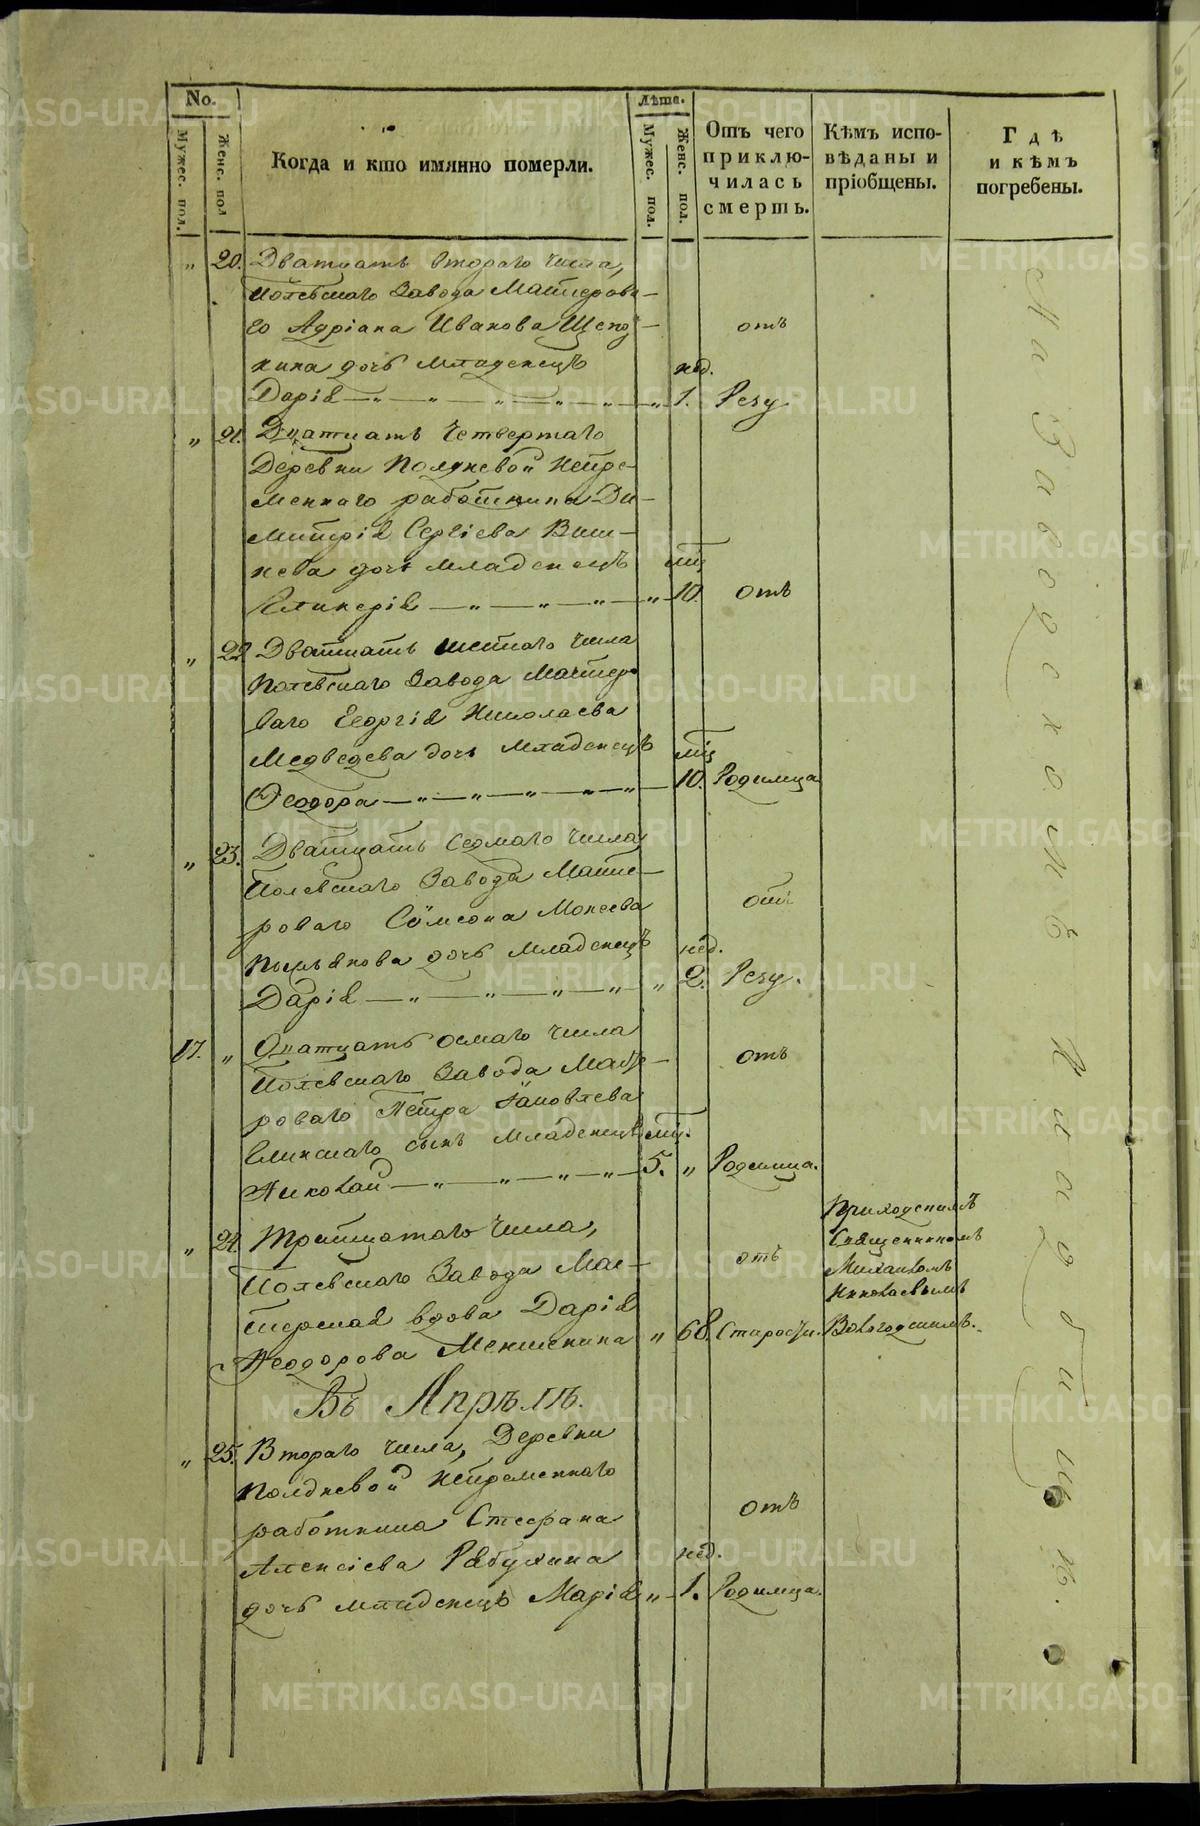 No.
Лѣта.
Мужес. пол.
Женс. пол
Когда и кто имянно померли.
Мужес. пол.
Женс. пол.
Отъ чего
приклю-
чилась
смерть.
Кѣмъ испо-
вѣданы и
пріобщены.
Гдѣ
и кѣмъ
погребены.
" 20. Дватцать втораго числа,
Полевскаго Завода Мастерова-
го Адріана Иванова Щепо- отъ
кина дочь младенецъ нед.
Дарія — " — " — " — " — " — " 1. Резу
" 21. Дватцать четвертаго
Деревни Полдневой Непре-
меннаго работника Ди-
митрія Сергіева
дочь младенецъ мц
Гликерія — " — " — " — " 10. отъ
" 22 Дватцать шестаго числа
Полевскаго Завода Мастеро-
ваго Георгія Николаева
Медведева дочь младенецъ мц
Ѳеодора — " — " — " — " — " — 10. Родимца
" 23. Дватцать седмаго числа
Полевскаго Завода Масте-
роваго Сѵмеона Мокеева отъ
дочь младенецъ нед.
Дарія — " — " — " — " " 2. Резу.
17. " Дватцать осмаго числа
Полевскаго Завода Масте- отъ
роваго Петра Яковлева
сынъ младенецъ мц.
Николай — " — " — " — " — 5. " Родимца.
" 24. Тритцатаго числа,
Полевскаго Завода Мас- отъ
терская вдова Дарія
Ѳеодорова Меншенина " 68. Старости.
Приходскимъ
Священникомъ
Михаиломъ
Николаевымъ
Вологодскимъ.
Въ Апрѣлѣ.
" 25. Втораго числа, Деревни
Полдневой Непременнаго
работника Стефана отъ
Алексіева Рябухина нед.
дочь младенецъ Марія " — 1. Родимца.
На Заводскомъ
Кладбищѣ.
METRIKI.GASO-URAL.RU